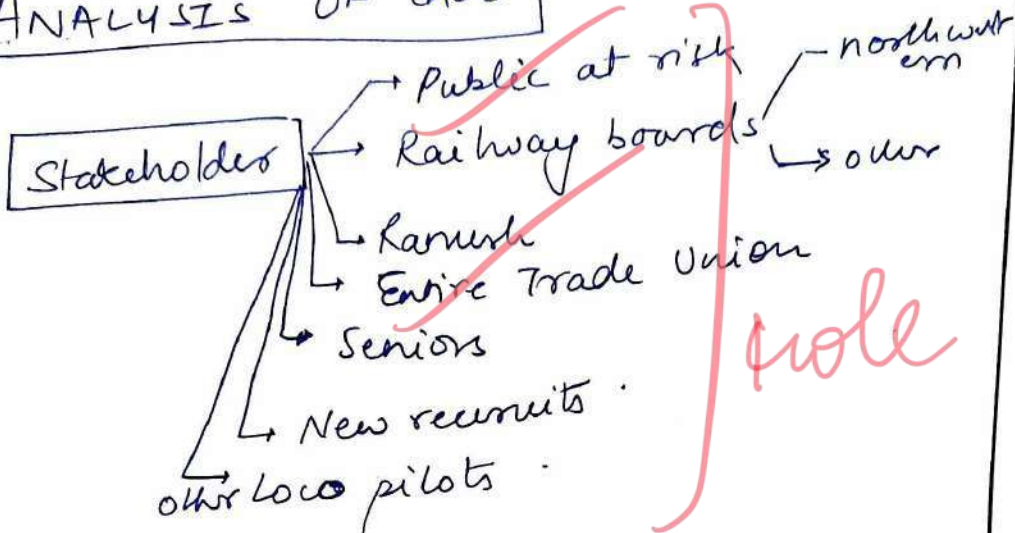 ANALYSIS OF
Stakeholder
Public at risk
Railway boards
northwestern
other
Ramesh
Entire Trade Union
Seniors
New recruits
other Loco pilots
role